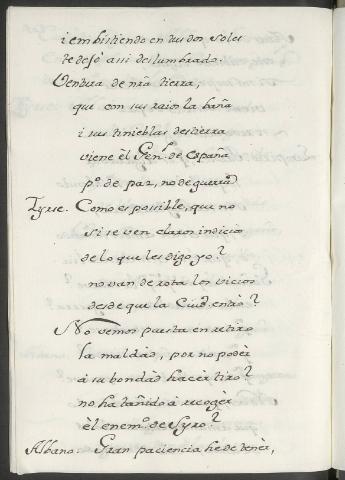 i embistiendo en tus dos soles
te dejó assi deslumbrado.
Ventura de nrã tierra,
que con sus raios la baña
i sus tinieblas destierra
viene èl Gen.l de España
p.o de paz, no de guerra.
Tyrse. Como es possible, que no
si se ven claros indicio
de lo que les digo yo?
no van de rota los vicios
desde que la Ciud. entró?
No vemos puesta en retiro
la maldad, por no podèr
à su bondad hacèr tiro?
no ha tañido à recogèr
èl enem.o de Syro?
Albano. Gran paciencia he de tenèr,